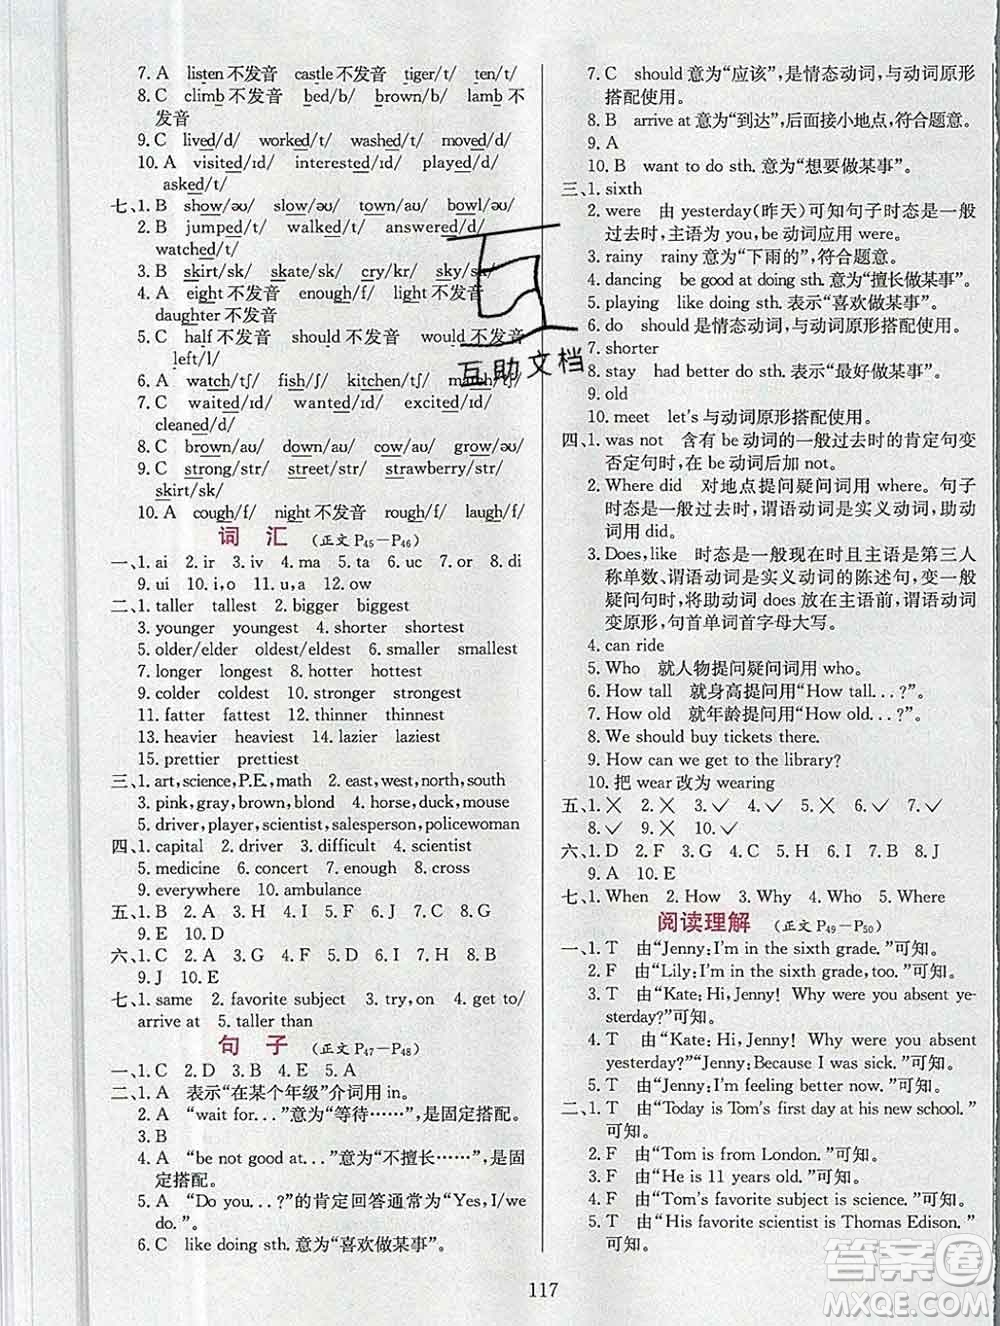 7. A listen 不发音 castle 不发音 tiger/t/ ten/t/
8. C climb 不发音 bed/b/ brown/b/ lamb 不
发音
9. C lived/d/ worked/t/ washed/t/ moved/d/
10. A visited/ɪd/ interested/ɪd/ played/d/
asked/t/
七、1. B show/əu/ slow/əu/ town/au/ bowl/əu/
2. B jumped/t/ walked/t/ answered/d/
watched/t/
3. B skirt/sk/ skate/sk/ cry/kr/ sky/sk/
4. A eight 不发音 enough/f/ light 不发音
daughter 不发音
5. C half 不发音 should 不发音 would 不发音
left/l/
6. A watch/tʃ/ fish/ʃ/ kitchen/tʃ/ match/tʃ/
7. C waited/ɪd/ wanted/ɪd/ excited/ɪd/
cleaned/d/
8. C brown/au/ down/au/ cow/au/ grow/əu/
9. C strong/str/ street/str/ strawberry/str/
skirt/sk/
10. A cough/f/ night 不发音 rough/f/ laugh/f/
词 汇 (正文 P45－P46)
一、1. ai 2. ir 3. iv 4. ma 5. ta 6. uc 7. or 8. en
9. ui 10. i,o 11. u,i 12. ow
二、1. taller tallest 2. bigger biggest
3. younger youngest 4. shorter shortest
5. older/elder oldest/eldest 6. smaller smallest
7. longer longest 8. hotter hottest
9. colder coldest 10. stronger strongest
11. fatter fattest 12. thinner thinnest
13. heavier heaviest 14. lazier laziest
15. prettier prettiest
三、1. art,science,P.E.,math 2. east,west,north,south
3. pink,gray,brown,blond 4. horse,duck,mouse
5. driver,player,scientist,salesperson,policewoman
四、1. capital 2. driver 3. difficult 4. scientist
5. medicine 6. concert 7. enough 8. cross
9. everywhere 10. ambulance
五、1. B 2. A 3. H 4. I 5. J 6. F 7. C 8. G
9. E 10. D
六、1. C 2. A 3. G 4. B 5. I 6. D 7. F 8. H
9. J 10. E
七、1. same 2. favorite subject 3. try,on 4. get to/
arrive at 5. taller than
句 子 (正文 P47－P48)
一、1. C 2. D 3. B 4. E 5. A
二、1. A 表示“在某个年级”介词用 in。
2. A “wait for. . .”意为“等待……”，是固定搭配。
3. B
4. A “be not good at. . .”意为“不擅长……”，是固
定搭配。
5. A “Do you. . .?”的肯定回答通常为“Yes, I/we
do.”。
6. C like doing sth. 意为“喜欢做某事”。
7. C should 意为“应该”，是情态动词，与动词原形
搭配使用。
8. B arrive at 意为“到达”，后面接小地点，符合题意。
9. A
10. B want to do sth. 意为“想要做某事”。
三、1. sixth
2. were 由 yesterday(昨天)可知句子时态是一般
过去时，主语为 you，be 动词应用 were。
3. rainy rainy 意为“下雨的”，符合题意。
4. dancing be good at doing sth. 意为“擅长做某事”。
5. playing like doing sth. 表示“喜欢做某事”。
6. do should 是情态动词，与动词原形搭配使用。
7. shorter
8. stay had better do sth. 表示“最好做某事”。
9. old
10. meet let's 与动词原形搭配使用。
四、1. was not 含有 be 动词的一般过去时的肯定句变
否定句时，在 be 动词后加 not。
2. Where did 对地点提问疑问词用 where。句子
时态为一般过去时，谓语动词是实义动词，助动
词用 did。
3. Does,like 时态是一般现在时且主语是第三人
称单数、谓语动词是实义动词的陈述句，变一般
疑问句时，将助动词 does 放在主语前，谓语动词
变原形，句首单词首字母大写。
4. can ride
5. Who 就人物提问疑问词用 who。
6. How tall 就身高提问用“How tall. . .?”。
7. How old 就年龄提问用“How old. . .?”。
8. We should buy tickets there.
9. How can we get to the library?
10. 把 wear 改为 wearing
五、1. ╳ 2. ╳ 3. ✓ 4. ✓ 5. ╳ 6. ✓ 7. ✓
8. ✓ 9. ╳ 10. ✓
六、1. D 2. F 3. G 4. I 5. C 6. H 7. B 8. J
9. A 10. E
七、1. When 2. How 3. Why 4. Who 5. Where
阅读理解 (正文 P49－P50)
一、1. T 由“Jenny: I'm in the sixth grade.”可知。
2. F 由“Lily: I'm in the sixth grade, too.”可知。
3. T 由“Kate: Hi, Jenny! Why were you absent ye-
sterday?”可知。
4. T 由“Kate: Hi, Jenny! Why were you absent
yesterday?”“Jenny: Because I was sick.”可知。
5. T 由“Jenny: I'm feeling better now.”可知。
二、1. T 由“Today is Tom's first day at his new school.”
可知。
2. F 由“Tom is from London.”可知。
3. F 由“He is 11 years old.”可知。
4. F 由“Tom's favorite subject is science.”可知。
5. T 由“His favorite scientist is Thomas Edison.”
可知。
117
互助文档
答案圈
MXQE.COM